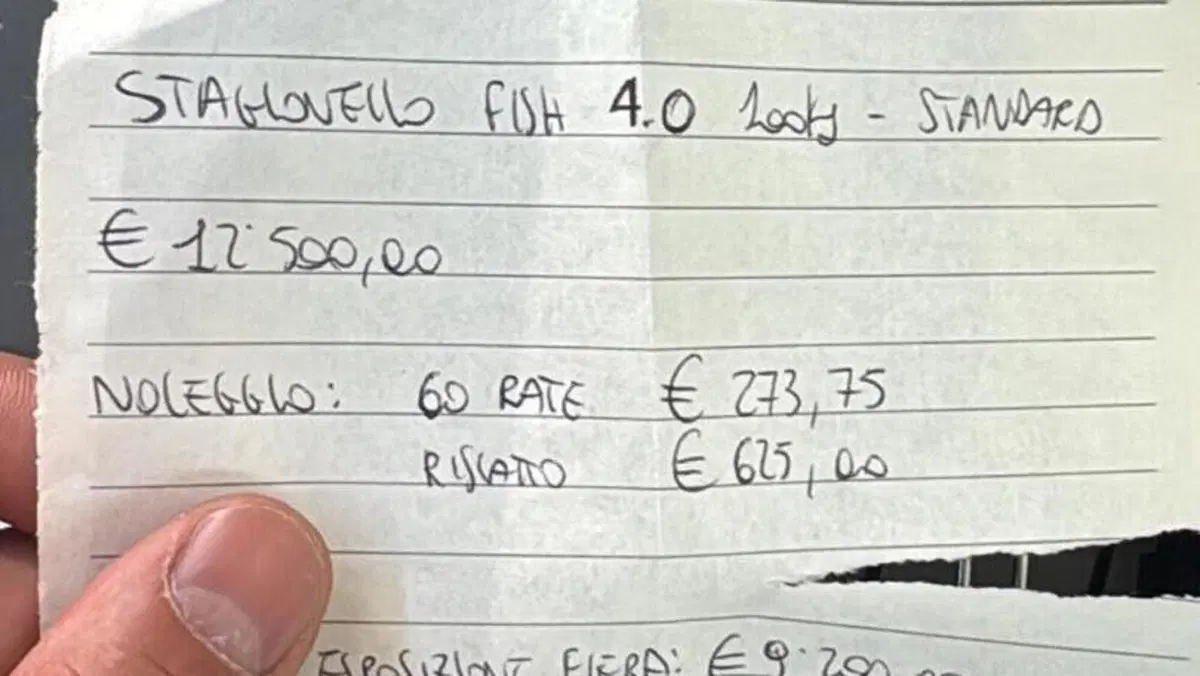 STAGIONELLO FISH 4.0 100kg - STANDARD
€ 12.500,00
NOLEGGIO: 60 RATE € 273,75
RISCATTO € 625,00
ESPOSIZIONE FIERA: € 9.200,00